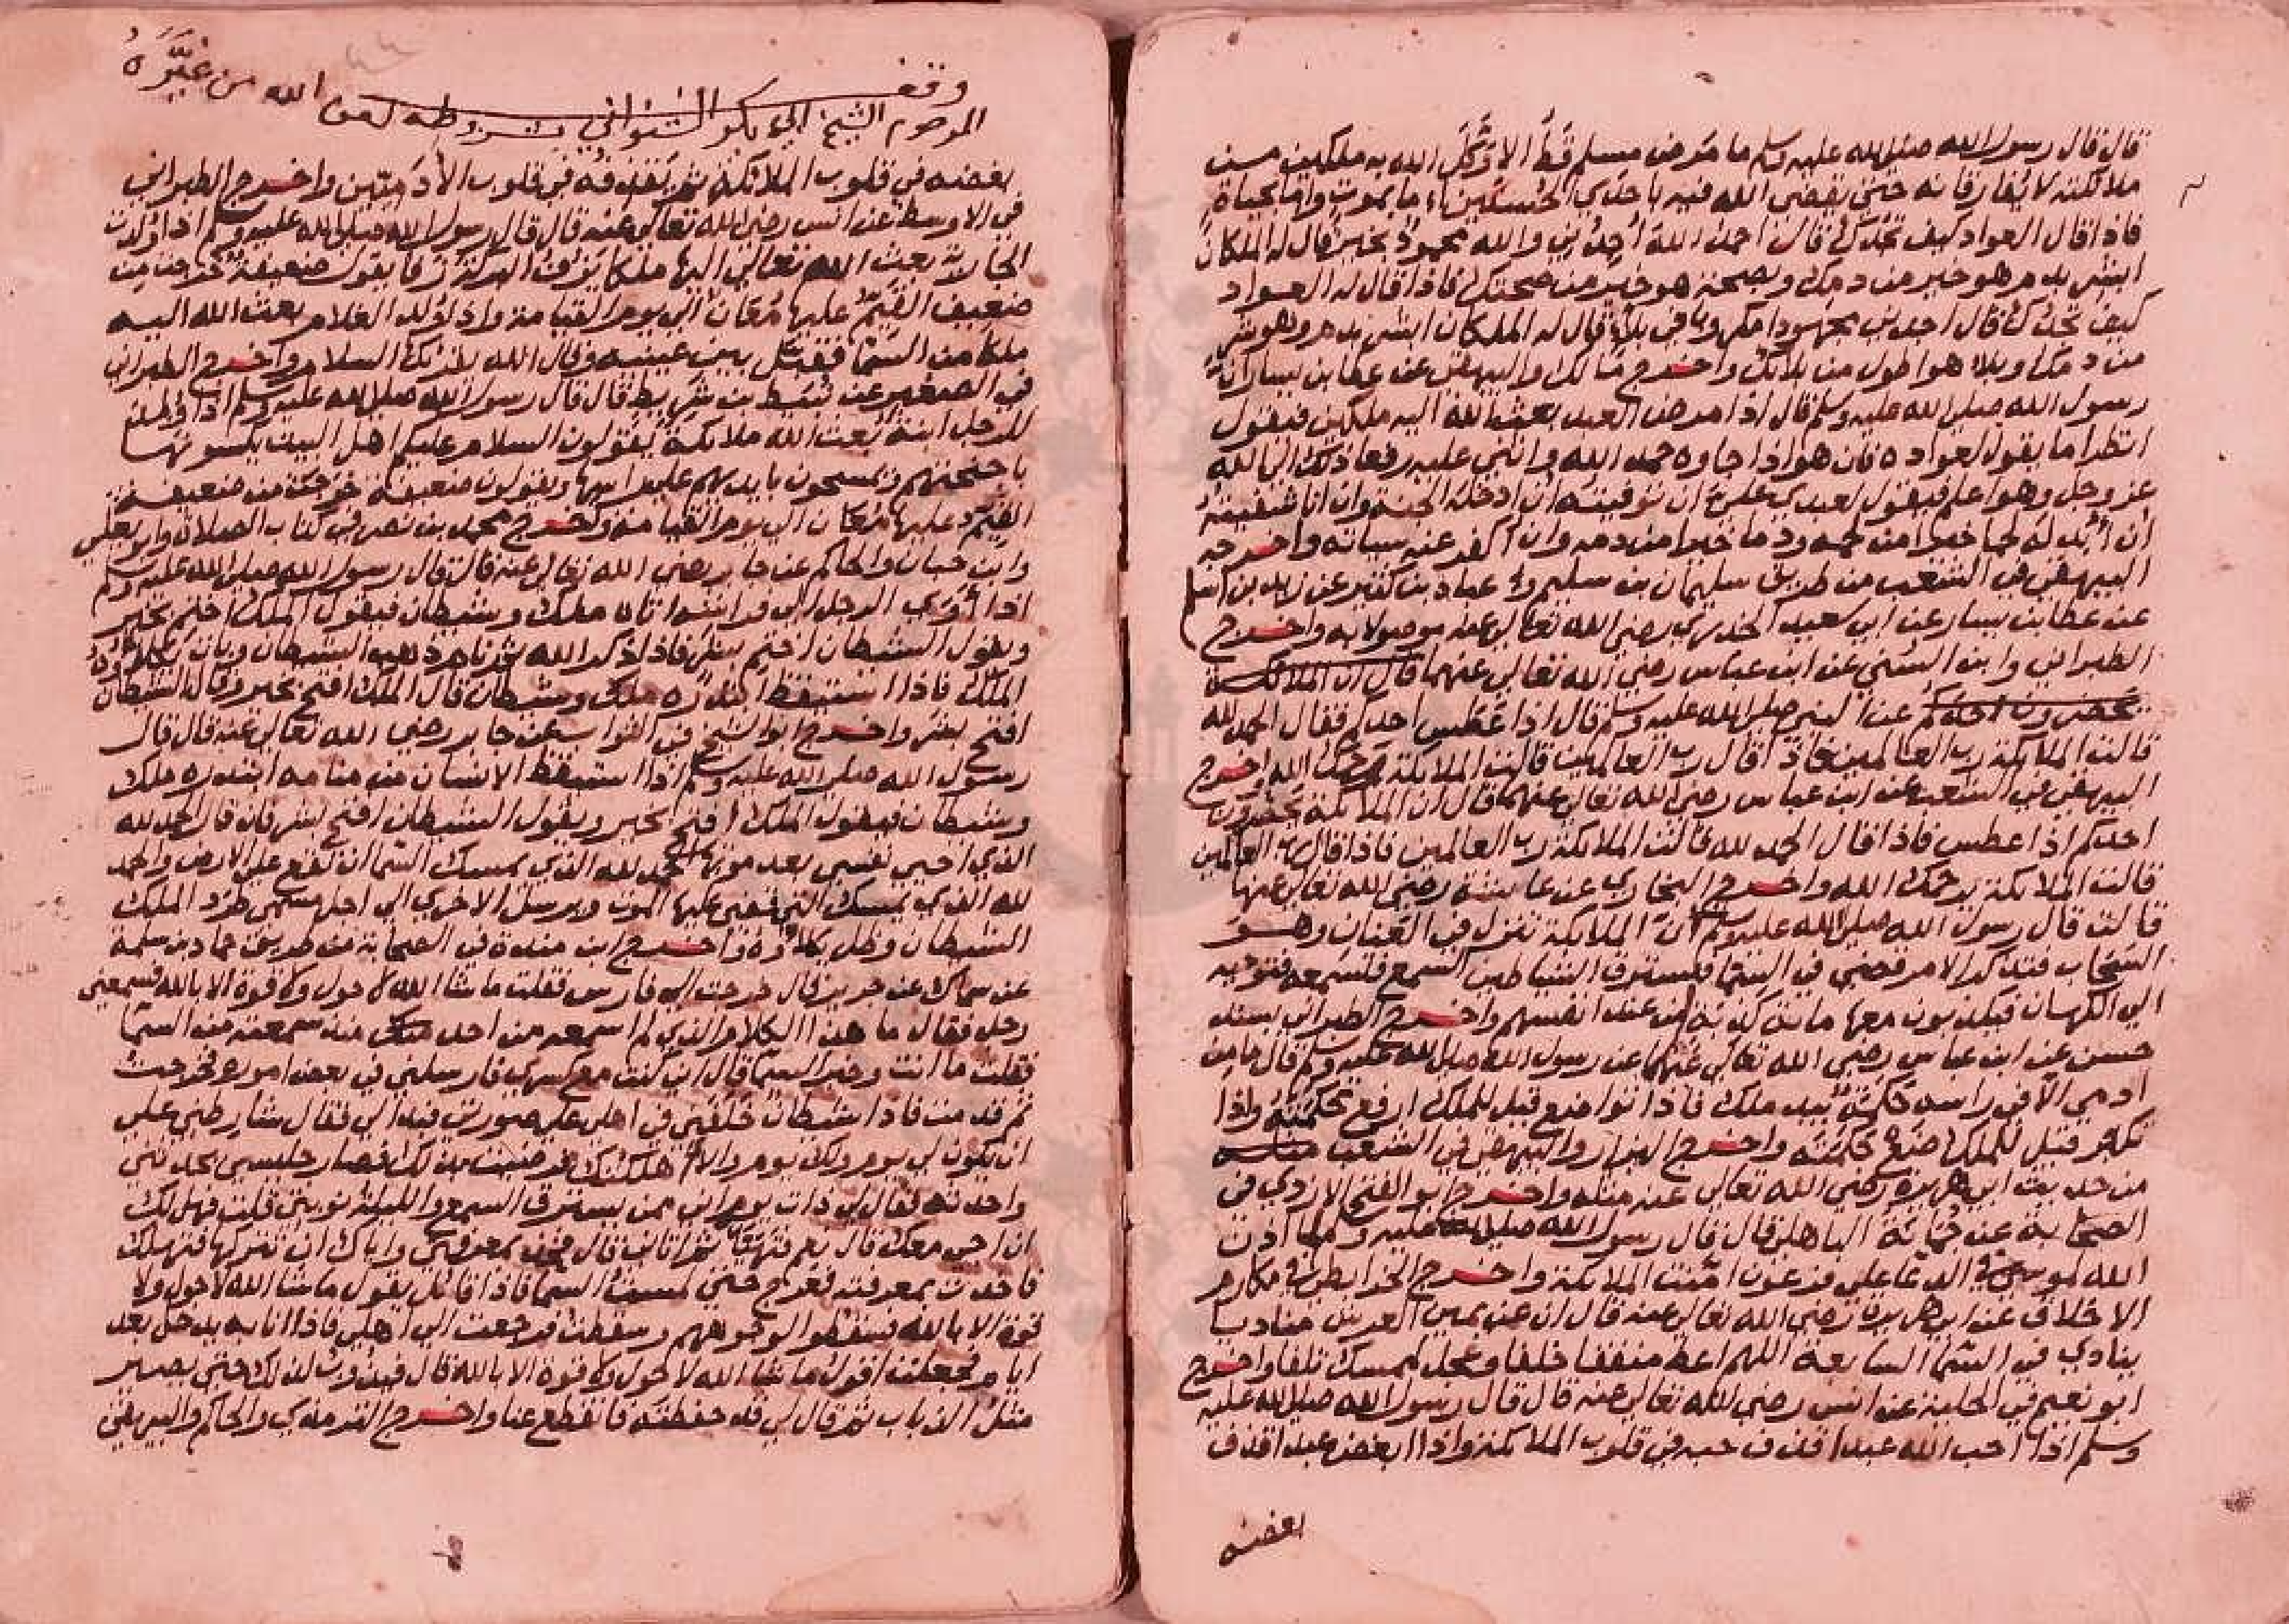 قال قال رسول الله صلى الله عليه وسلم ما مرض مسلم قط الا وكل الله به ملكين من
ملائكته لا يفارقانه حتى يقضي الله فيه باحدي الحسنيين اما بموت واما بحياة
فاذا قال العواد كيف تجدك قال احمد الله اجدني والله محمود بخير قال له الملكان
ابشر بدم هو خير من دمك وصحة هو خير من صحتك فاذا قال له العواد
كيف تجدك قال اجدني مجهودا في بلاء قال له الملكان ابشر بدم وهو شر
من دمك وبلاء هو اطول من بلائك واخرج مالك والبيهقي عن عطا بن يسار ان
رسول الله صلى الله عليه وسلم قال اذا مرض العبد بعث الله اليه ملكين فيقول
انظرا ما يقول لعواده فان هو اذا جاوه حمد الله واثني عليه رفعا ذلك الي الله
عز وجل وهو اعلم فيقول لعبدي علي ان توفيته ان ادخله الجنة وان انا شفيته
ان ابدله لحما خيرا من لحمه ودما خيرا من دمه وان اكفر عنه سيياته واخرجه
البيهقي في الشعب من طريق سليمان بن سليم عن عباد بن كثير عن زيد بن اسلم
عن عطا بن يسار عن ابي سعيد الخدري رضي الله تعالى عنه موصولا به واخرج
الطبراني وابن السني عن ابن عباس رضي الله تعالى عنهما قال ان الملائكة
تحضرون احدكم عن النبي صلى الله عليه وسلم قال اذا عطس احدكم فقال الحمد لله
قالت الملائكة رب العالمين فاذا قال رب العالمين قالت الملائكة يرحمك الله واخرج
البيهقي في الشعب عن ابن عباس رضي الله تعالى عنهما قال ان الملائكة تحضرون
احدكم اذا عطس فاذا قال الحمد لله قالت الملائكة رب العالمين فاذا قال رب العالمين
قالت الملائكة يرحمك الله واخرج البخاري عن عائشة رضي الله تعالى عنها
قالت قال رسول الله صلى الله عليه وسلم ان الملائكة تنزل في العنان وهو
السحاب فتذكر الامر قضي في السما فتسترق الشياطين السمع فتسمعه فتوحيه
الي الكهان فيكذبون معها ماية كذبة من عند انفسهم واخرج الطبراني بسند
حسن عن ابن عباس رضي الله تعالى عنهما عن رسول الله صلى الله عليه وسلم قال ما من
ادمي الا في راسه حكمة بيد ملك فاذا تواضع قيل للملك ارفع حكمته واذا
تكبر قيل للملك ضع حكمته واخرج البزار والبيهقي في الشعب مثله
من حديث ابي هريرة رضي الله تعالى عنه مثله واخرج ابو الفتح الازدي في
الصحابة عن جمانة الباهلي قال قال رسول الله صلى الله عليه وسلم لما اذن
الله لموسى في الدعا على فرعون امنت الملائكة واخرج الخرايطي في مكارم
الاخلاق عن ابي هريرة رضي الله تعالى عنه قال ان عن يمين العرش مناديا
ينادي في السما السابعة اللهم اعط منفقا خلفا وعجل لممسك تلفا واخرج
ابو نعيم في الحلية عن انس رضي الله تعالى عنه قال قال رسول الله صلى الله عليه
وسلم اذا احب الله عبدا قذف حبه في قلوب الملائكة واذا ابغض عبدا قذف
بغضه
وقف
المرحوم الشيخ ابي بكر الشنواني بشروطه لعن الله من غيره
بغضه في قلوب الملائكة ثم يقذفه في قلوب الآدميين واخرج الطبراني
في الاوسط عن انس رضي الله تعالى عنه قال قال رسول الله صلى الله عليه وسلم اذا ولدت
الجارية بعث الله تعالى اليها ملكا يزف البركة زفا يقول ضعيفة خرجت من
ضعيف القيم عليها معان الي يوم القيامة واذا ولد الغلام بعث الله اليه
ملكا من السما فقبل بين عينيه وقال الله يقرئك السلام واخرج الطبراني
في الصغير عن نبيط بن شريط قال قال رسول الله صلى الله عليه وسلم اذا ولد
للرجل ابنة بعث الله ملائكة يقولون السلام عليكم اهل البيت يكسونها
باجنحتهم ويمسحون بايديهم على راسها ويقولون ضعيفة خرجت من ضعيفة
القيم عليها معان الي يوم القيامة واخرج محمد بن نصر في كتاب الصلاة وابو يعلي
وابن حبان والحاكم عن جابر رضي الله تعالى عنه قال قال رسول الله صلى الله عليه وسلم
اذا أوى الرجل الي فراشه اتاه ملك وشيطان فيقول الملك اختم بخير
ويقول الشيطان اختم بشر فاذا ذكر الله ثم نام ذهب الشيطان وبات يكلؤه
الملك فاذا استيقظ ابتدره ملك وشيطان قال الملك افتح بخير وقال الشيطان
افتح بشر واخرج ابو الشيخ في الثواب عن جابر رضي الله تعالى عنه قال قال
رسول الله صلى الله عليه وسلم اذا استيقظ الانسان من منامه ابتدره ملك
وشيطان فيقول الملك افتح بخير ويقول الشيطان افتح بشر فان قال الحمد لله
الذي احيي نفسي بعد موتها الحمد لله الذي يمسك السما ان تقع على الارض والحمد
لله الذي يمسك التي قضى عليها الموت ويرسل الاخري الي اجل مسمي طرد الملك
الشيطان وظل يكلؤه واخرج ابن مندة في الصحابة من طريق حماد بن سلمة
عن سماك عن جرير قال خرجت الي فارس فقلت ما شا الله لا حول ولا قوة الا بالله فسمعني
رجل فقال ما هذا الكلام الذي لم اسمعه من احد منذ سمعته من السما
فقلت ما انت وخبر السما قال اني كنت مع كسري فارسلني في بعض اموره فخرجت
ثم قدمت فاذا شيطان خلفني في اهلي على صورتي فبدا لي فقال شارطني على
ان يكون لي يوم ولك يوم والا اهلكتك فرضيت بذلك فصار جليسي يحدثني
واحدثه فقال لي ذات يوم اني ممن يسترق السمع والليلة نوبتي قلت فهل لك
ان اجي معك قال نعم فتهيا ثم اتاني قال خذ بمعرفتي واياك ان تتركها فتهلك
فاخذت بمعرفته فعرج حتى لمست السما فاذا قائل يقول ما شا الله لا حول ولا
قوة الا بالله فسقطوا لوجوههم وسقطت فرجعت الي اهلي فاذا انا به يدخل بعد
ايام فجعلت اقول ما شا الله لا حول ولا قوة الا بالله قال فيذوب لذلك حتى يصير
مثل الذباب ثم قال لي قد حفظته فانقطع عنا واخرج الترمذي والحاكم والبيهقي